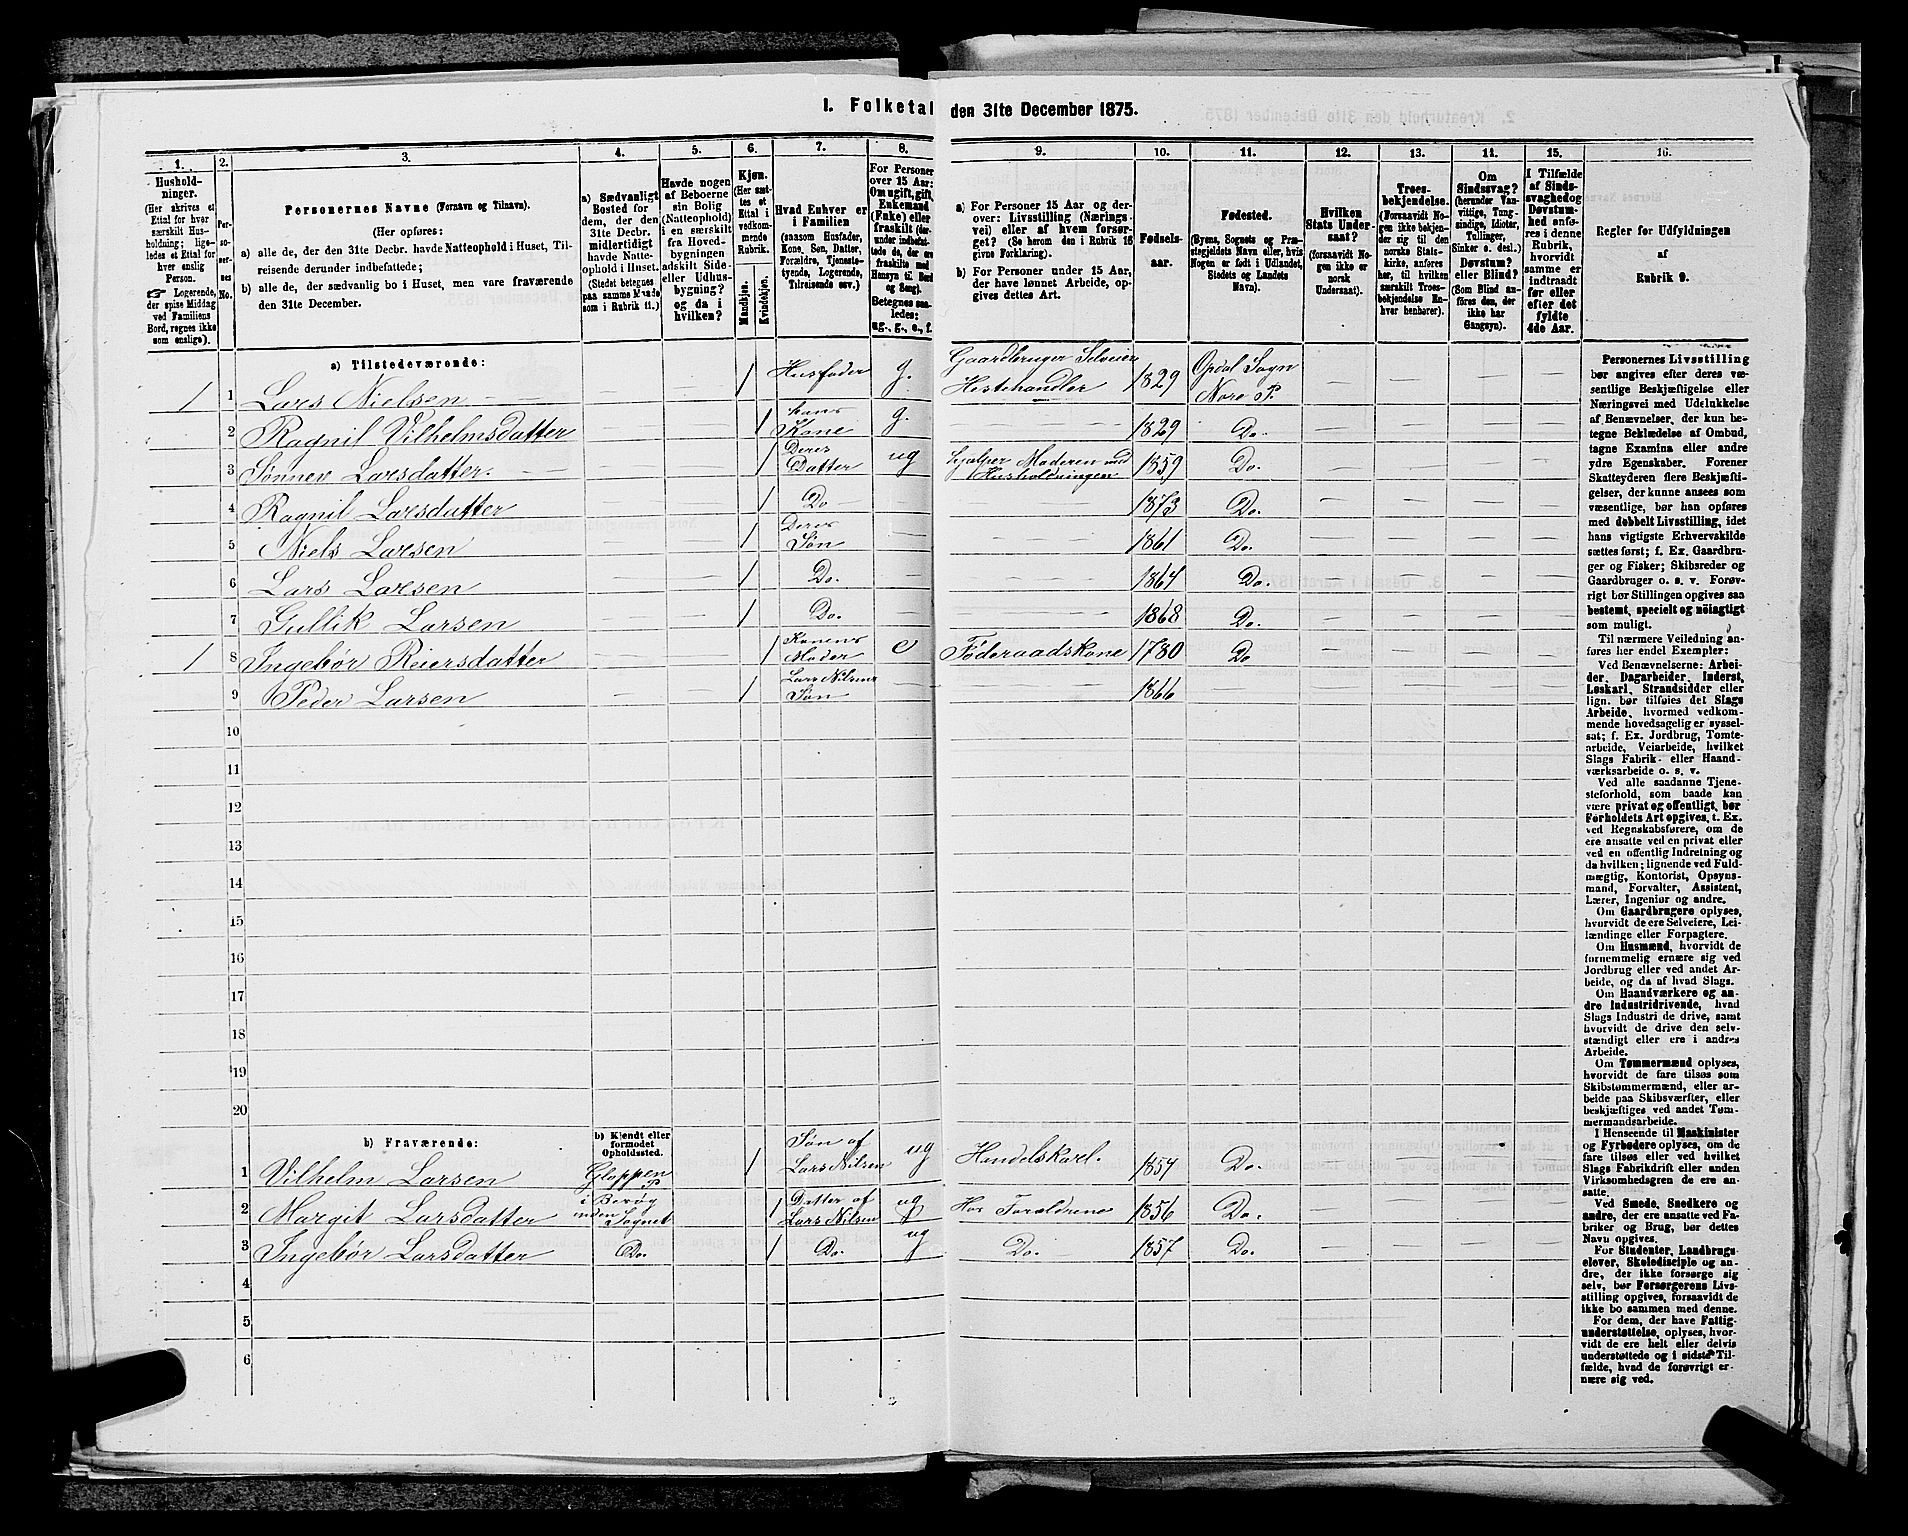 1. Folketal den 31te December 1875.
1. 2. 3. 4. 5. 6. 7. 8. 9. 10. 11. 12. 13. 14. 15. 16.
Hushold-
ninger.
(Her skrives et
Ettal for hver
særskilt Hus-
holdning; lige-
ledes et Ettal for
hver enslig
Person.
☞ Logerende,
der spise Middag
ved Familiens
Bord, regnes ikke
som enslige).
Per-
so-
ner-
nes
No.
Personernes Navne (Fornavn og Tilnavn).
(Her opføres:
a) alle de, der den 31te Decbr. havde Natteophold i Huset, Til-
reisende derunder indbefattede;
b) alle de, der sædvanlig bo i Huset, men vare fraværende
den 31te December.
a) Sædvanligt
Bosted for
dem, der den
31te Decbr.
midlertidigt
havde Natte-
ophold i Huset.
(Stedet betegnes
paa samme Maade
som i Rubrik 11.)
Havde nogen
af Beboerne
sin Bolig
(Natteophold)
i en særskilt
fra Hoved-
bygningen
adskilt Side-
eller Udhus-
bygning?
og da i
hvilken?
Kjøn.
(Her sæt-
tes et
Ettal i
vedkom-
mende
Rubrik.
Mandkjøn.
Kvindekjøn.
Hvad Enhver er
i Familien
(saasom Husfader,
Kone, Søn, Datter,
Forældre, Tjeneste-
tyende, Logerende,
Tilreisende osv.)
For Personer
over 15 Aar:
Om ugift, gift,
Enkemand
(Enke) eller
fraskilt (der-
under indbefat-
tede de, der ere
fraskilte med
Hensyn til Bord
og Seng).
Betegnes saa-
ledes:
ug., g., e., f.
a) For Personer 15 Aar og der-
over: Livsstilling (Nærings-
vei) eller af hvem forsør-
get? (Se herom den i Rubrik 16
givne Forklaring).
b) For Personer under 15 Aar,
der have lønnet Arbeide, op-
gives dettes Art.
Fødsels-
aar.
Fødested.
(Byens, Sognets og Præ-
stegjeldets Navn eller, hvis
Nogen er født i Udlandet,
Stedets og Landets
Navn).
Hvilken
Stats Under-
saat?
(forsaavidt No-
gen ikke er
norsk
Undersaat).
Troes-
bekjendelse.
(Forsaavidt No-
gen ikke bekjen-
der sig til den
norske Stats-
kirke, anføres
her, til hvilken
særskilt Troes-
bekjendelse En-
hver henhører).
Om
Sindssvag?
(herunder Van-
vittige, Tung-
sindige, Idioter,
Tullinger,
Sinker o. desl.)
Døvstum?
eller Blind?
(Som Blind an-
føres den, der
ikke har
Gangsyn).
I Tilfælde
af Sinds-
svaghed og
Døvstum-
hed anfø-
res i denne
Rubrik,
hvorvidt
samme er
indtraadt
før eller
efter det
fyldte
4de Aar.
Regler for Udfyldningen
af
Rubrik 9.
a) Tilstedeværende:
1 1 Lars Nielsen — — 1 Husfader g. Gaardbruger Selveier Hestehandler 1829 Opdal Sogn Nore P. — — — —
2 Ragnil Vilhelmsdatter — — 1 hans Kone g. 1829 Do. — — — —
3 Sønnev Larsdatter. — — 1 Deres Datter ug hjælper Moderen med Husholdningen 1859 Do. — — — —
4 Ragnil Larsdatter — — 1 Do — — 1873 Do. — — — —
5 Niels Larsen — — 1 Deres Søn — — 1861 Do. — — — —
6 Lars Larsen — — 1 Do. — — 1864 Do. — — — —
7 Gullik Larsen — — 1 Do. — — 1868 Do. — — — —
1 8 Ingebør Reiersdatter — — 1 Konens Moder e Føderaadskone 1780 Do — — — —
9 Peder Larsen — — 1 Lars Nilsens Søn — — 1866 — — — — —
10
11
12
13
14
15
16
17
18
19
20
b) Fraværende:
b) Kjendt eller
formodet
Opholdssted.
1 Vilhelm Larsen Gloppen P 1 Søn af Lars Nilsen ug Handelskarl. 1854 Do. — — — —
2 Margit Larsdatter i Bervøg inden Sognet 1 Datter af Lars Nilsen ug Hos Forældrene 1856 Do. — — — —
3 Ingebør Larsdatter Do. 1 Do. ug Do. 1857 Do. — — — —
4
5
6
Personernes Livsstilling
bør angives efter deres væ-
sentlige Beskjæftigelse eller
Næringsvei med Udelukkelse
af Benævnelser, der kun be-
tegne Beklædelse af Ombud,
tagne Examina eller andre
ydre Egenskaber. Forener
Skatteyderen flere Beskjæfti-
gelser, der kunne ansees som
væsentlige, bør han opføres
med dobbelt Livsstilling, idet
hans vigtigste Erhvervskilde
sættes først; f. Ex. Gaardbru-
ger og Fisker; Skibsreder og
Gaardbruger o. s. v. Forøv-
rigt bør Stillingen opgives saa
bestemt, specielt og nöiagtigt
som muligt.
Til nærmere Veiledning an-
føres her endel Exempler:
Ved Benævnelserne: Arbei-
der, Dagarbeider, Inderst,
Løskarl, Strandsidder eller
lign. bør tilføies det Slags
Arbeide, hvormed vedkom-
mende hovedsagelig er syssel-
sat; f. Ex. Jordbrug, Tomte-
arbeide, Veiarbeide, hvilket
Slags Fabrik- eller Haand-
værksarbeide o. s. v.
Ved alle saadanne Tjene-
steforhold, som baade kan
være privat og offentligt, bør
Forholdets Art opgives, t. Ex.
ved Regnskabsførere, om de
ere ansatte ved en privat eller
ved en offentlig Indretning og
da hvilken; lignende ved Fuld-
mægtig, Kontorist, Opsyns-
mand, Forvalter, Assistent,
Lærer, Ingeniør og andre.
Om Gaardbrugere oplyses,
hvorvidt de ere Selveiere, Lei-
lændinge eller Forpagtere.
Om Husmænd, hvorvidt de
fornemmelig ernære sig ved
Jordbrug eller ved andet Ar-
beide, og da af hvad Slags.
Om Haandværkere og an-
dre Industridrivende, hvad
Slags Industri de drive, samt
hvorvidt de drive den selv-
stændigt eller ere i andres
Arbeide.
Om Tømmermænd oplyses,
hvorvidt de fare tilsøs som
Skibstømmermænd, eller ar-
beide paa Skibsværfter, eller
beskjæftiges ved andet Tøm-
mermandsarbeide.
I Henseende til Maskinister
og Fyrbødere oplyses, om de
fare tilsøs eller ved hvilket
Slags Fabrikdrift eller anden
Virksomhedsgren de ere an-
satte.
Ved Smede, Snedkere og
andre, der ere ansatte ved Fa-
briker og Brug, bør dettes
Navn opgives.
For Studenter, Landbrugs-
elever, Skoledisciple og an-
dre, der ikke forsørge sig
selv, bør Forsørgerens Livs-
stilling opgives, forsaavidt de
ikke bo sammen med denne.
For dem, der have Fattig-
understøttelse, oplyses, hvor-
vidt de ere helt eller delvis
understøttede og i sidste Til-
fælde, hvad de forøvrigt er-
nære sig ved.